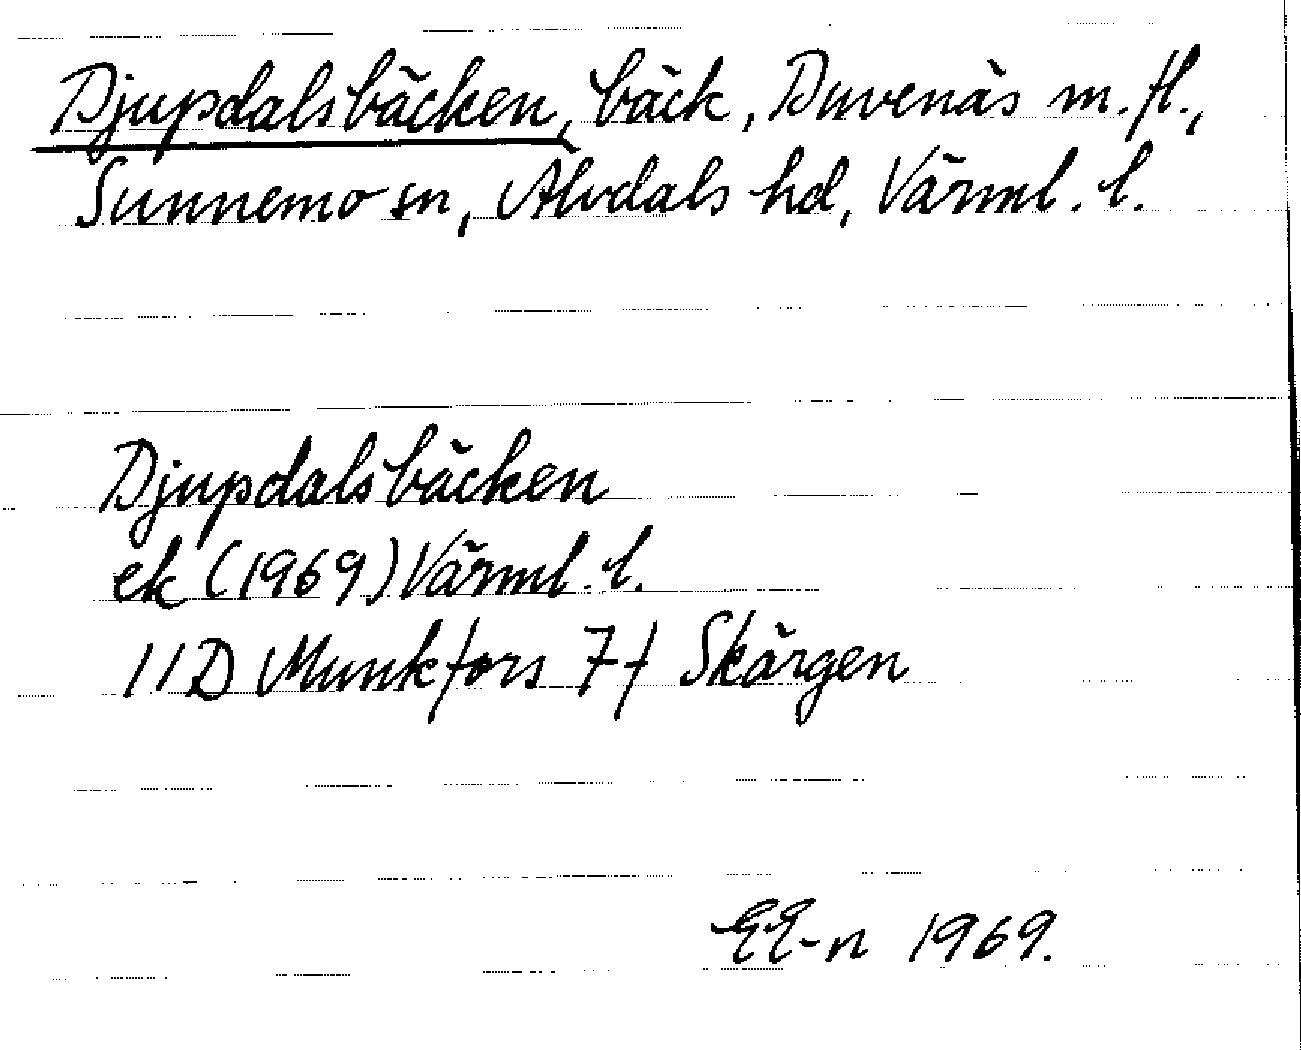 Djupdalsbäcken, bäck, Duvenäs m.fl.,
Sunnemo sn, Älvdals hd, Värml. l.
Djupdalsbäcken
ek (1969) Värml. l.
11D Munkfors 7f Skärgen
EE-n 1969.